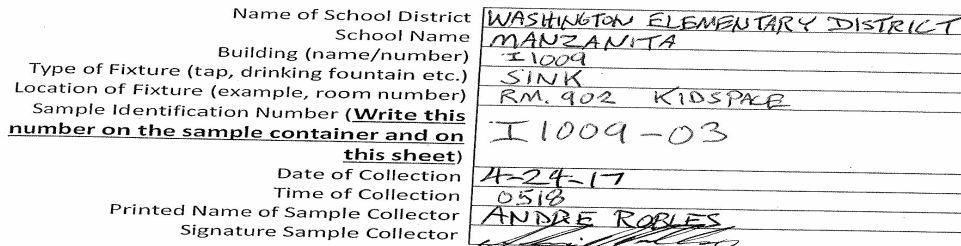 Name of School District WASHINGTON ELEMENTARY DISTRICT
School Name MANZANITA
Building (name/number) I1009
Type of Fixture (tap, drinking fountain etc.) SINK
Location of Fixture (example, room number) RM. 902 KIDSPACE
Sample Identification Number (Write this
number on the sample container and on I1009-03
this sheet)
Date of Collection 4-24-17
Time of Collection 0518
Printed Name of Sample Collector ANDRE ROBLES
Signature Sample Collector